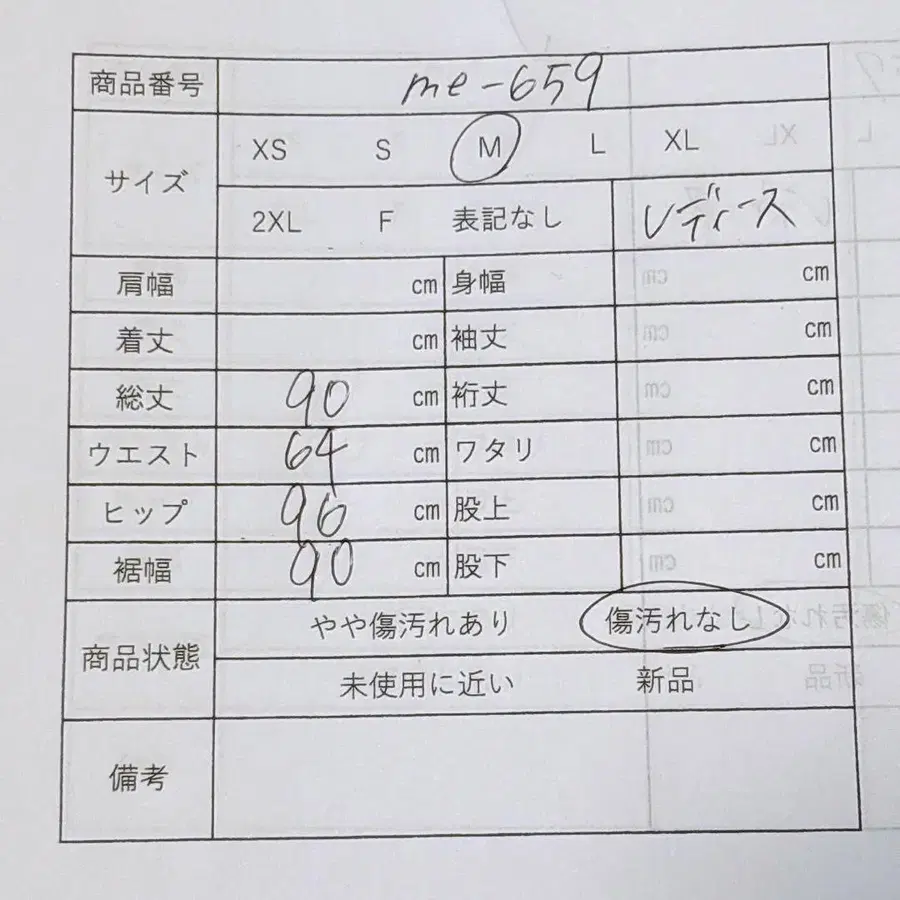 商品番号 me-659
サイズ XS S M L XL
2XL F 表記なし レディース
肩幅 cm 身幅 cm
着丈 cm 袖丈 cm
総丈 90 cm 裄丈 cm
ウエスト 64 cm ワタリ cm
ヒップ 96 cm 股上 cm
裾幅 90 cm 股下 cm
商品状態 やや傷汚れあり 傷汚れなし
未使用に近い 新品
備考